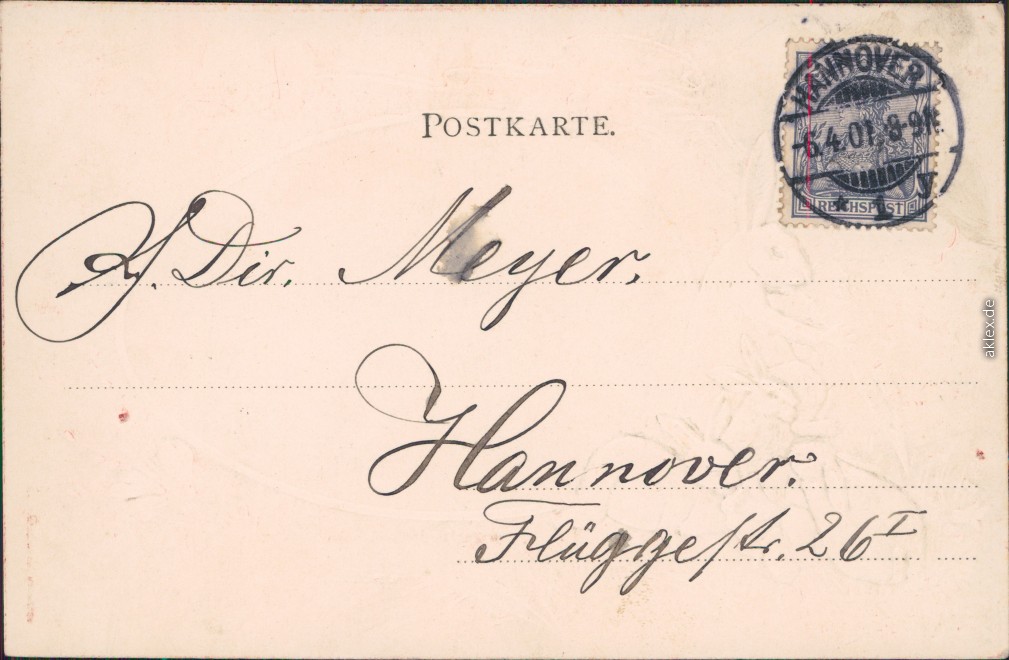 POSTKARTE.
HANNOVER
-6.4.01. 8-9N.
* 1 y
REICHSPOST
Dir. Meyer.
Hannover.
Flüggestr. 26 I
aklex.de